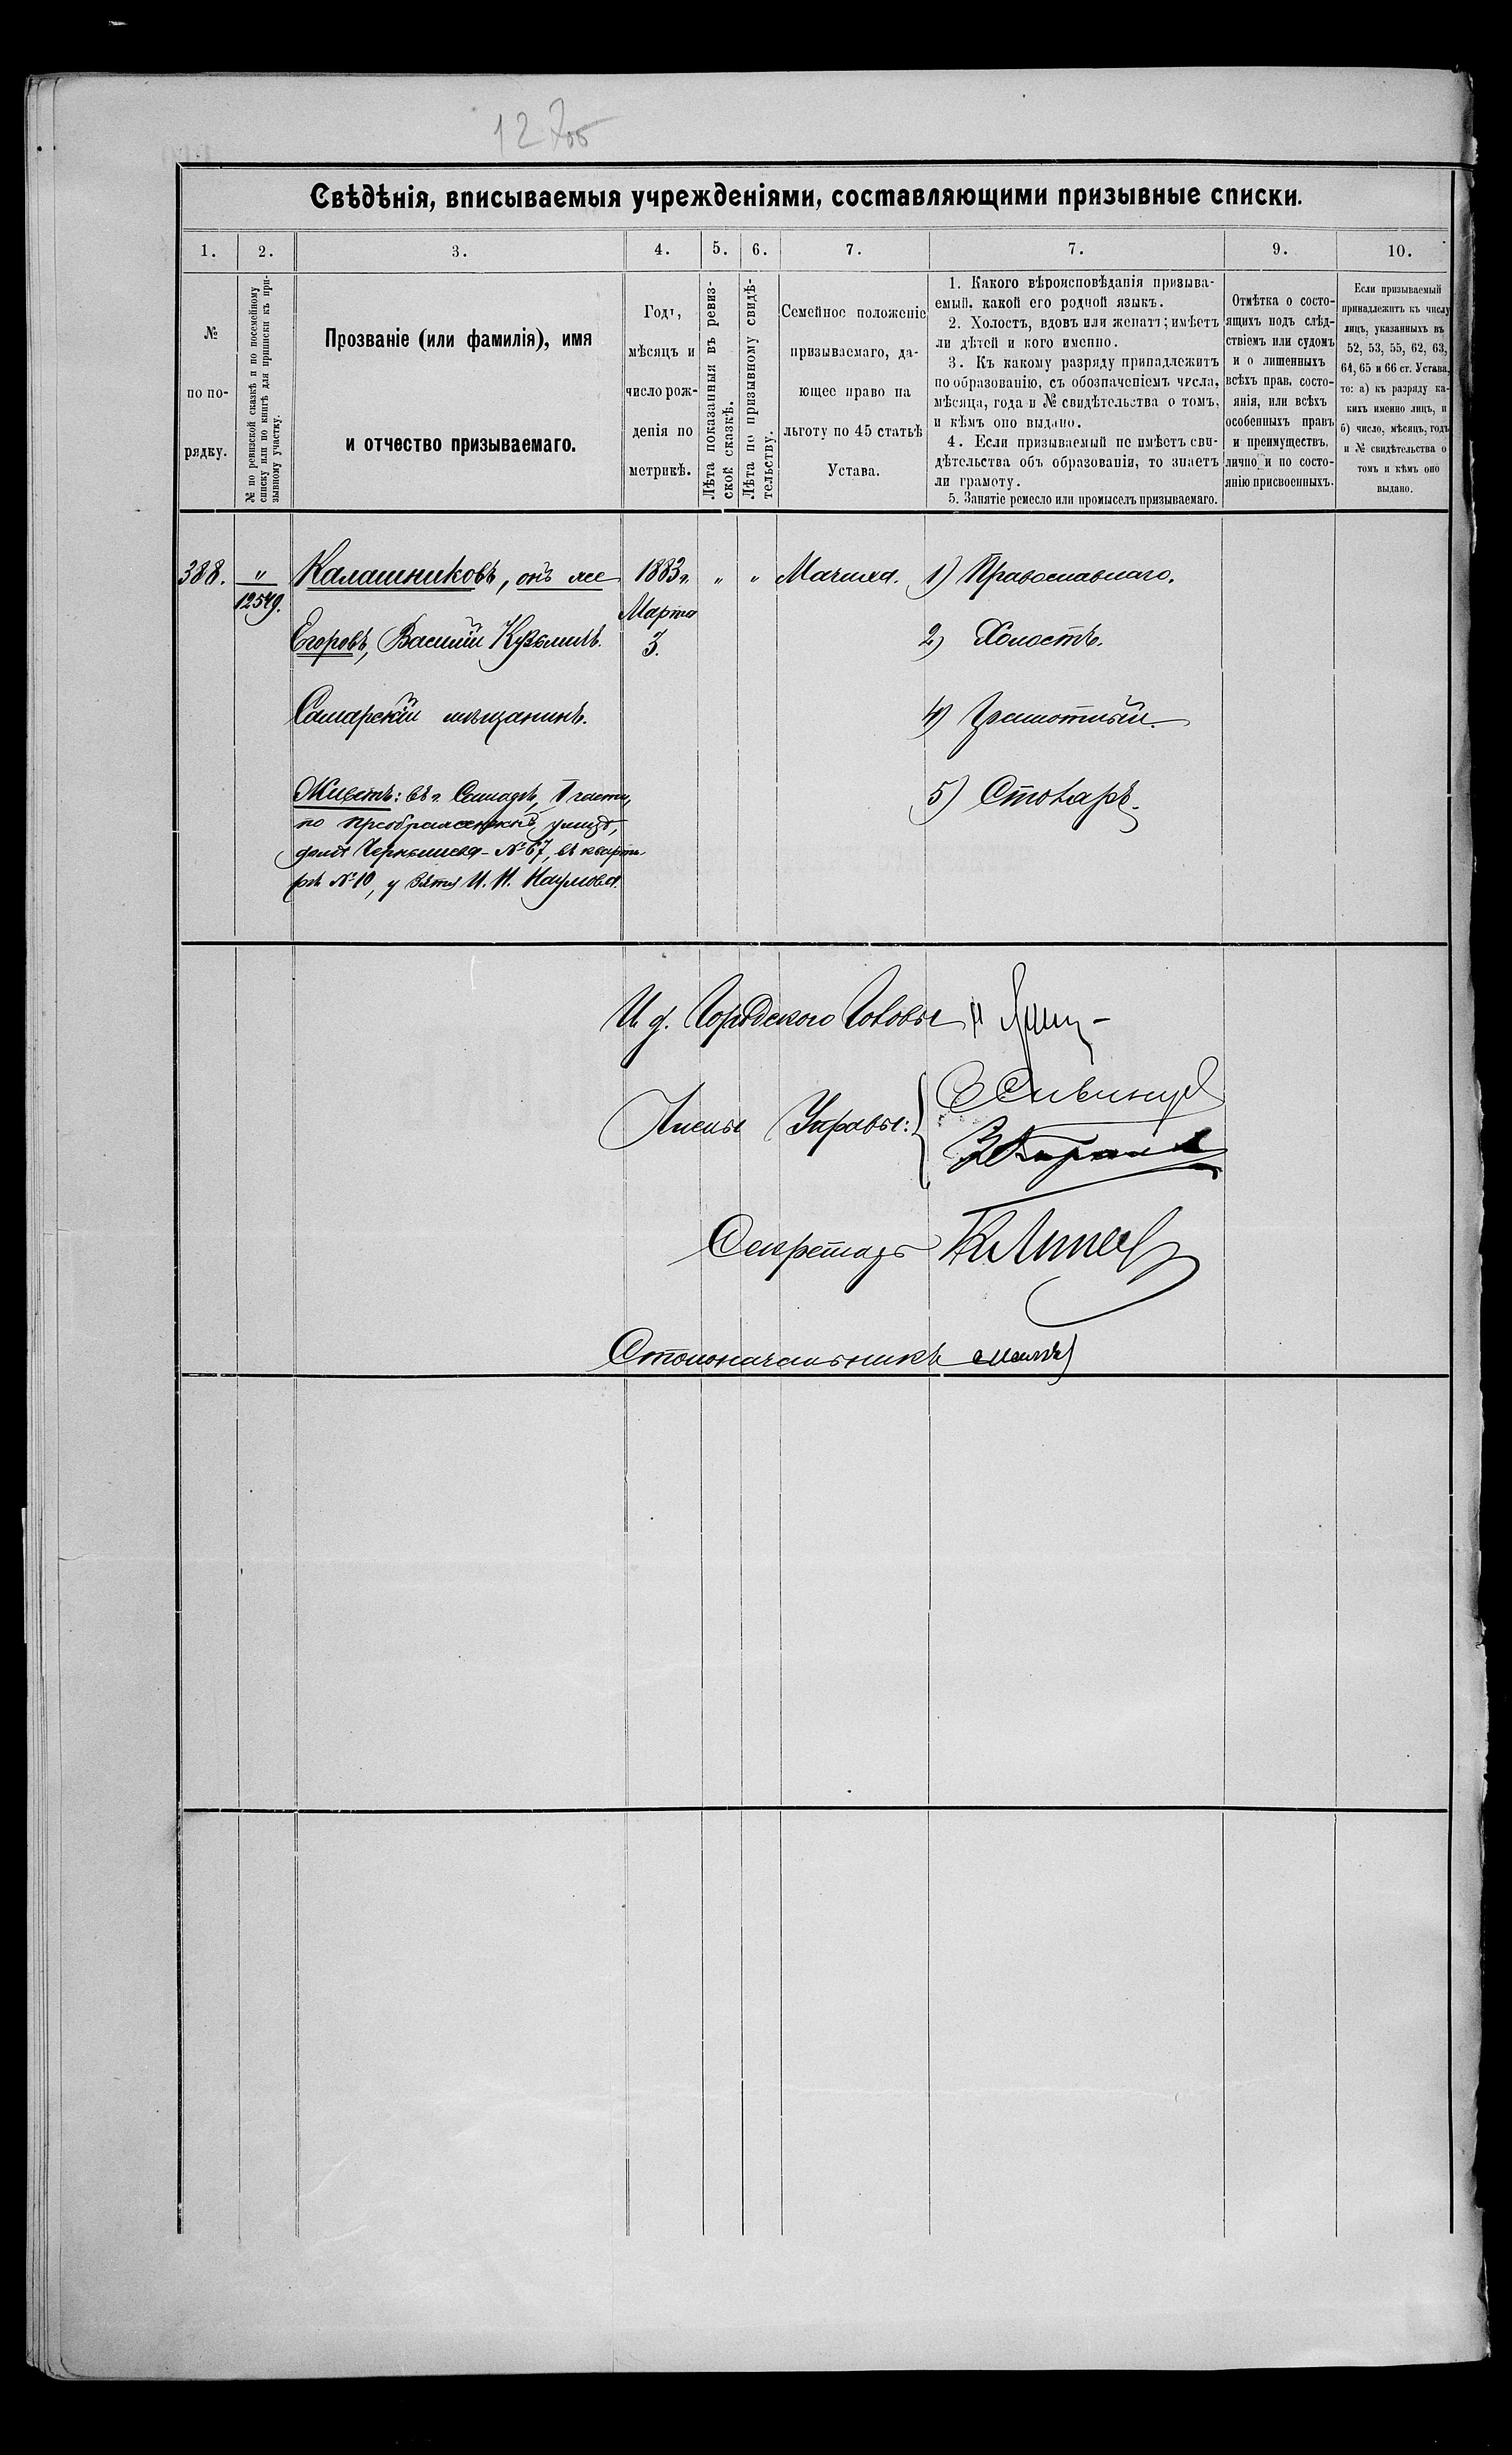 Свѣдѣнія, вписываемыя учрежденіями, составляющими призывные списки.
1. 2. 3. 4. 5. 6. 7. 7. 9. 10.
№
по по-
рядку.
№ по ревизской сказкѣ и по посемейному
списку или по книгѣ для приписки къ при-
зывному участку.
Прозваніе (или фамилія), имя
и отчество призываемаго.
Годъ,
мѣсяцъ и
число рож-
денія по
метрикѣ.
Лѣта показанныя въ ревиз-
ской сказкѣ.
Лѣта по призывному свидѣ-
тельству.
Семейное положеніе
призываемаго, да-
ющее право на
льготу по 45 статьѣ
Устава.
1. Какого вѣроисповѣданія призыва-
емый, какой его родной языкъ.
2. Холостъ, вдовъ или женатъ; имѣетъ
ли дѣтей и кого именно.
3. Къ какому разряду принадлежитъ
по образованію, съ обозначеніемъ числа,
мѣсяца, года и № свидѣтельства о томъ,
и кѣмъ оно выдано.
4. Если призываемый не имѣетъ сви-
дѣтельства объ образованіи, то знаетъ
ли грамоту.
5. Занятіе ремесло или промыселъ призываемаго.
Отмѣтка о состо-
ящихъ подъ слѣд-
ствіемъ или судомъ
и о лишенныхъ
всѣхъ прав, состо-
янія, или всѣхъ
особенныхъ правъ
и преимуществъ,
лично и по состо-
янію присвоенныхъ.
Если призываемый
принадлежитъ къ числу
лицъ, указанныхъ въ
52, 53, 55, 62, 63,
64, 65 и 66 ст. Устава,
то: а) къ разряду ка-
кихъ именно лицъ, и
б) число, мѣсяцъ, годъ
и № свидѣтельства о
томъ и кѣмъ оно
выдано.
388.
"
12549.
Калашниковъ, онъ же
Егоровъ, Василій Кузьмичъ.
Самарскій мѣщанинъ.
Живетъ: въ г. Самарѣ, 1 части,
по Преображенской улицѣ,
домъ Чернышева - № 67, въ кварти-
рѣ № 10, у зятя И. И. Наумова.
1883 г.
Марта
3.
" "
Мачиха.
1) Православнаго.
2) Холостъ.
4) Грамотный.
5) Столяръ.
И. д. Городского Головы
Члены Управы:
Секретарь
Столоначальникъ